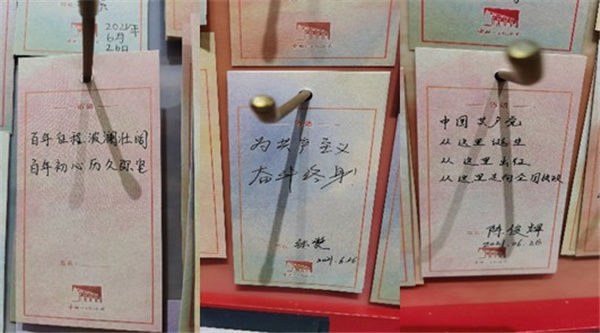 2021年
6月
26日
百年征程波澜壮阔
百年初心历久弥坚
为共产主义
奋斗终身!
2021.6.26
中国共产党
从这里诞生
从这里出征
从这里走向全国执政
陈俊辉
2021.06.26